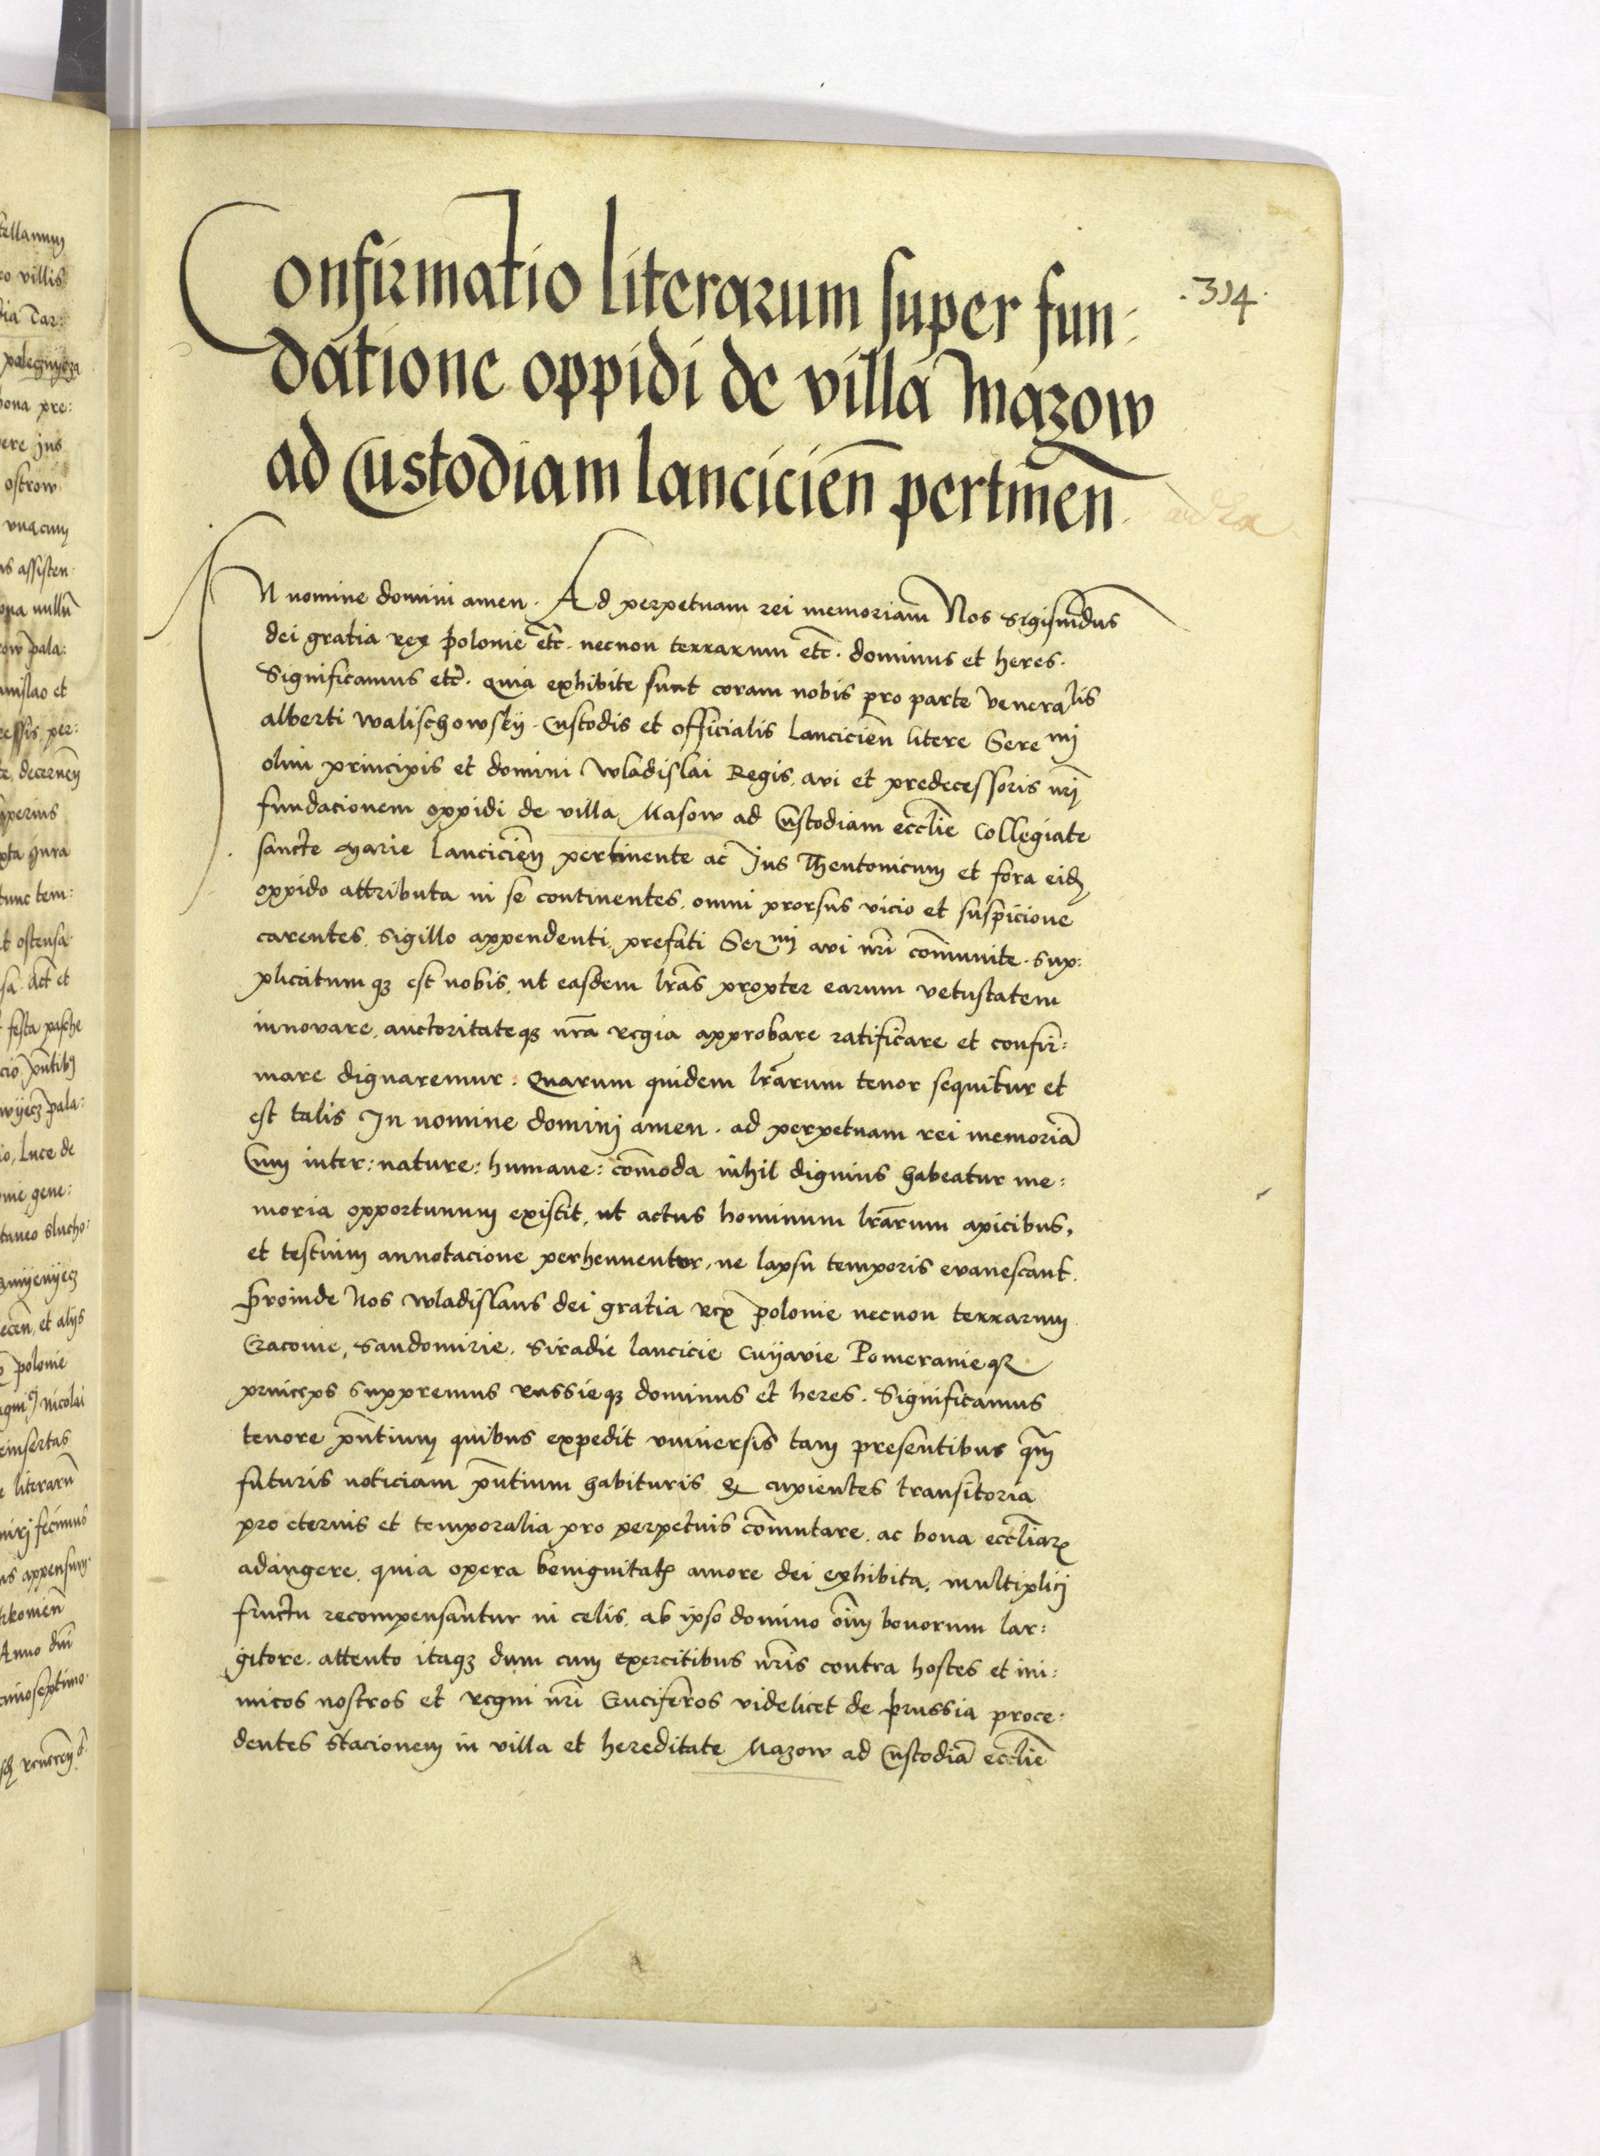 .314.
Confirmatio literarum super fun:
datione oppidi de villa Mazow
ad Custodiam lancicien̄ pertinen̄
IN nomine domini amen. Ad perpetuam rei memoriam Nos Sigismūdus
dei gratia rex polonie etc̄. necnon terrarum etc̄. dominus et heres.
Significamus etc̄. quia exhibite sunt coram nobis pro parte veneralis
alberti walischowskÿ. Custodis et officialis lancicien̄ litere Sereᵐⁱ
olim principis et domini wladislai Regis, avi et predecessoris nr̄i
fundacionem oppidi de villa Masow ad Custodiam eccl̄ie Collegiate
sancte marie lancicien̄ pertinente ac Jus Theutonicum et fora eidē
oppido attributa in se continentes, omni prorsus vicio et suspicione
carentes, sigillo appendenti prefati Serᵐⁱ avi nr̄i com̄unite. Sup:
plicatumqȝ est nobis, ut easdem lr̄as propter earum vetustatem
innovare, auctoritateqȝ nr̄a regia approbare ratificare et confir:
mare dignaremur: Quarum quidem lr̄arum tenor sequitur et
est talis In nomine dominj amen. ad perpetuam rei memoriā
Cum inter: nature: humane: com̄oda nihil dignius habeatur me:
moria opportunum existit, ut actus hominum lr̄arum apicibus,
et testium annotacione perhennentur, ne lapsu temporis evanescant.
Proinde Nos wladislaus dei gratia rex polonie necnon terrarum
Cracovie, Sandomirie. Siradie lancicie Cuÿavie Pomeranieqȝ
princeps Suppremus russieqȝ dominus et heres. Significamus
tenore pn̄tium quibus expedit universis tam presentibus qm̄
futuris noticiam pn̄tium habituris q cupientes transitoria
pro eternis et temporalia pro perpetuis com̄utare, ac bona eccl̄iarꝫ
adaugere, quia opera benignitatꝭ amore dei exhibita, multiplicj
fructu recompensantur in celis, ab ipso domino oīm bonorum lar:
gitore. attento itaqȝ dum cum exercitibus nr̄is contra hostes et ini:
micos nostros et regni nr̄i Cruciferos videlicet de prussia proce:
dentes stacionem in villa et hereditate Mazow ad Custodiā eccl̄ie